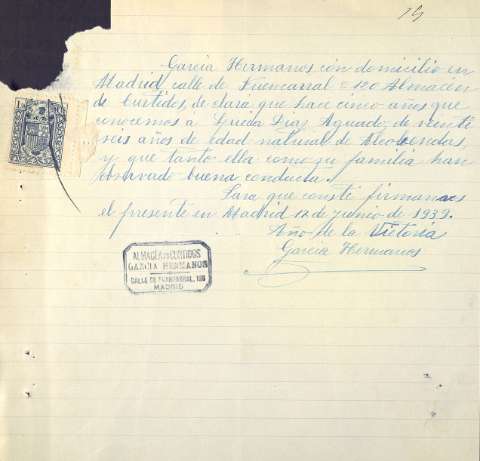 15
García Hermanos con domicilio en
Madrid, calle de Fuencarral 120 Almacen
de Curtidos, declara, que hace cinco años que
conocemos a Lucía Díaz Aguado, de veinti
seis años de edad natural de Alcobendas,
y que tanto ella como su familia han
observado buena conducta.
Para que conste firmamos
el presente en Madrid 12 de Junio de 1939.
Año de la Victoria
García Hermanos
ALMACÉN DE CURTIDOS
GARCIA HERMANOS
CALLE DE FUENCARRAL, 120
MADRID